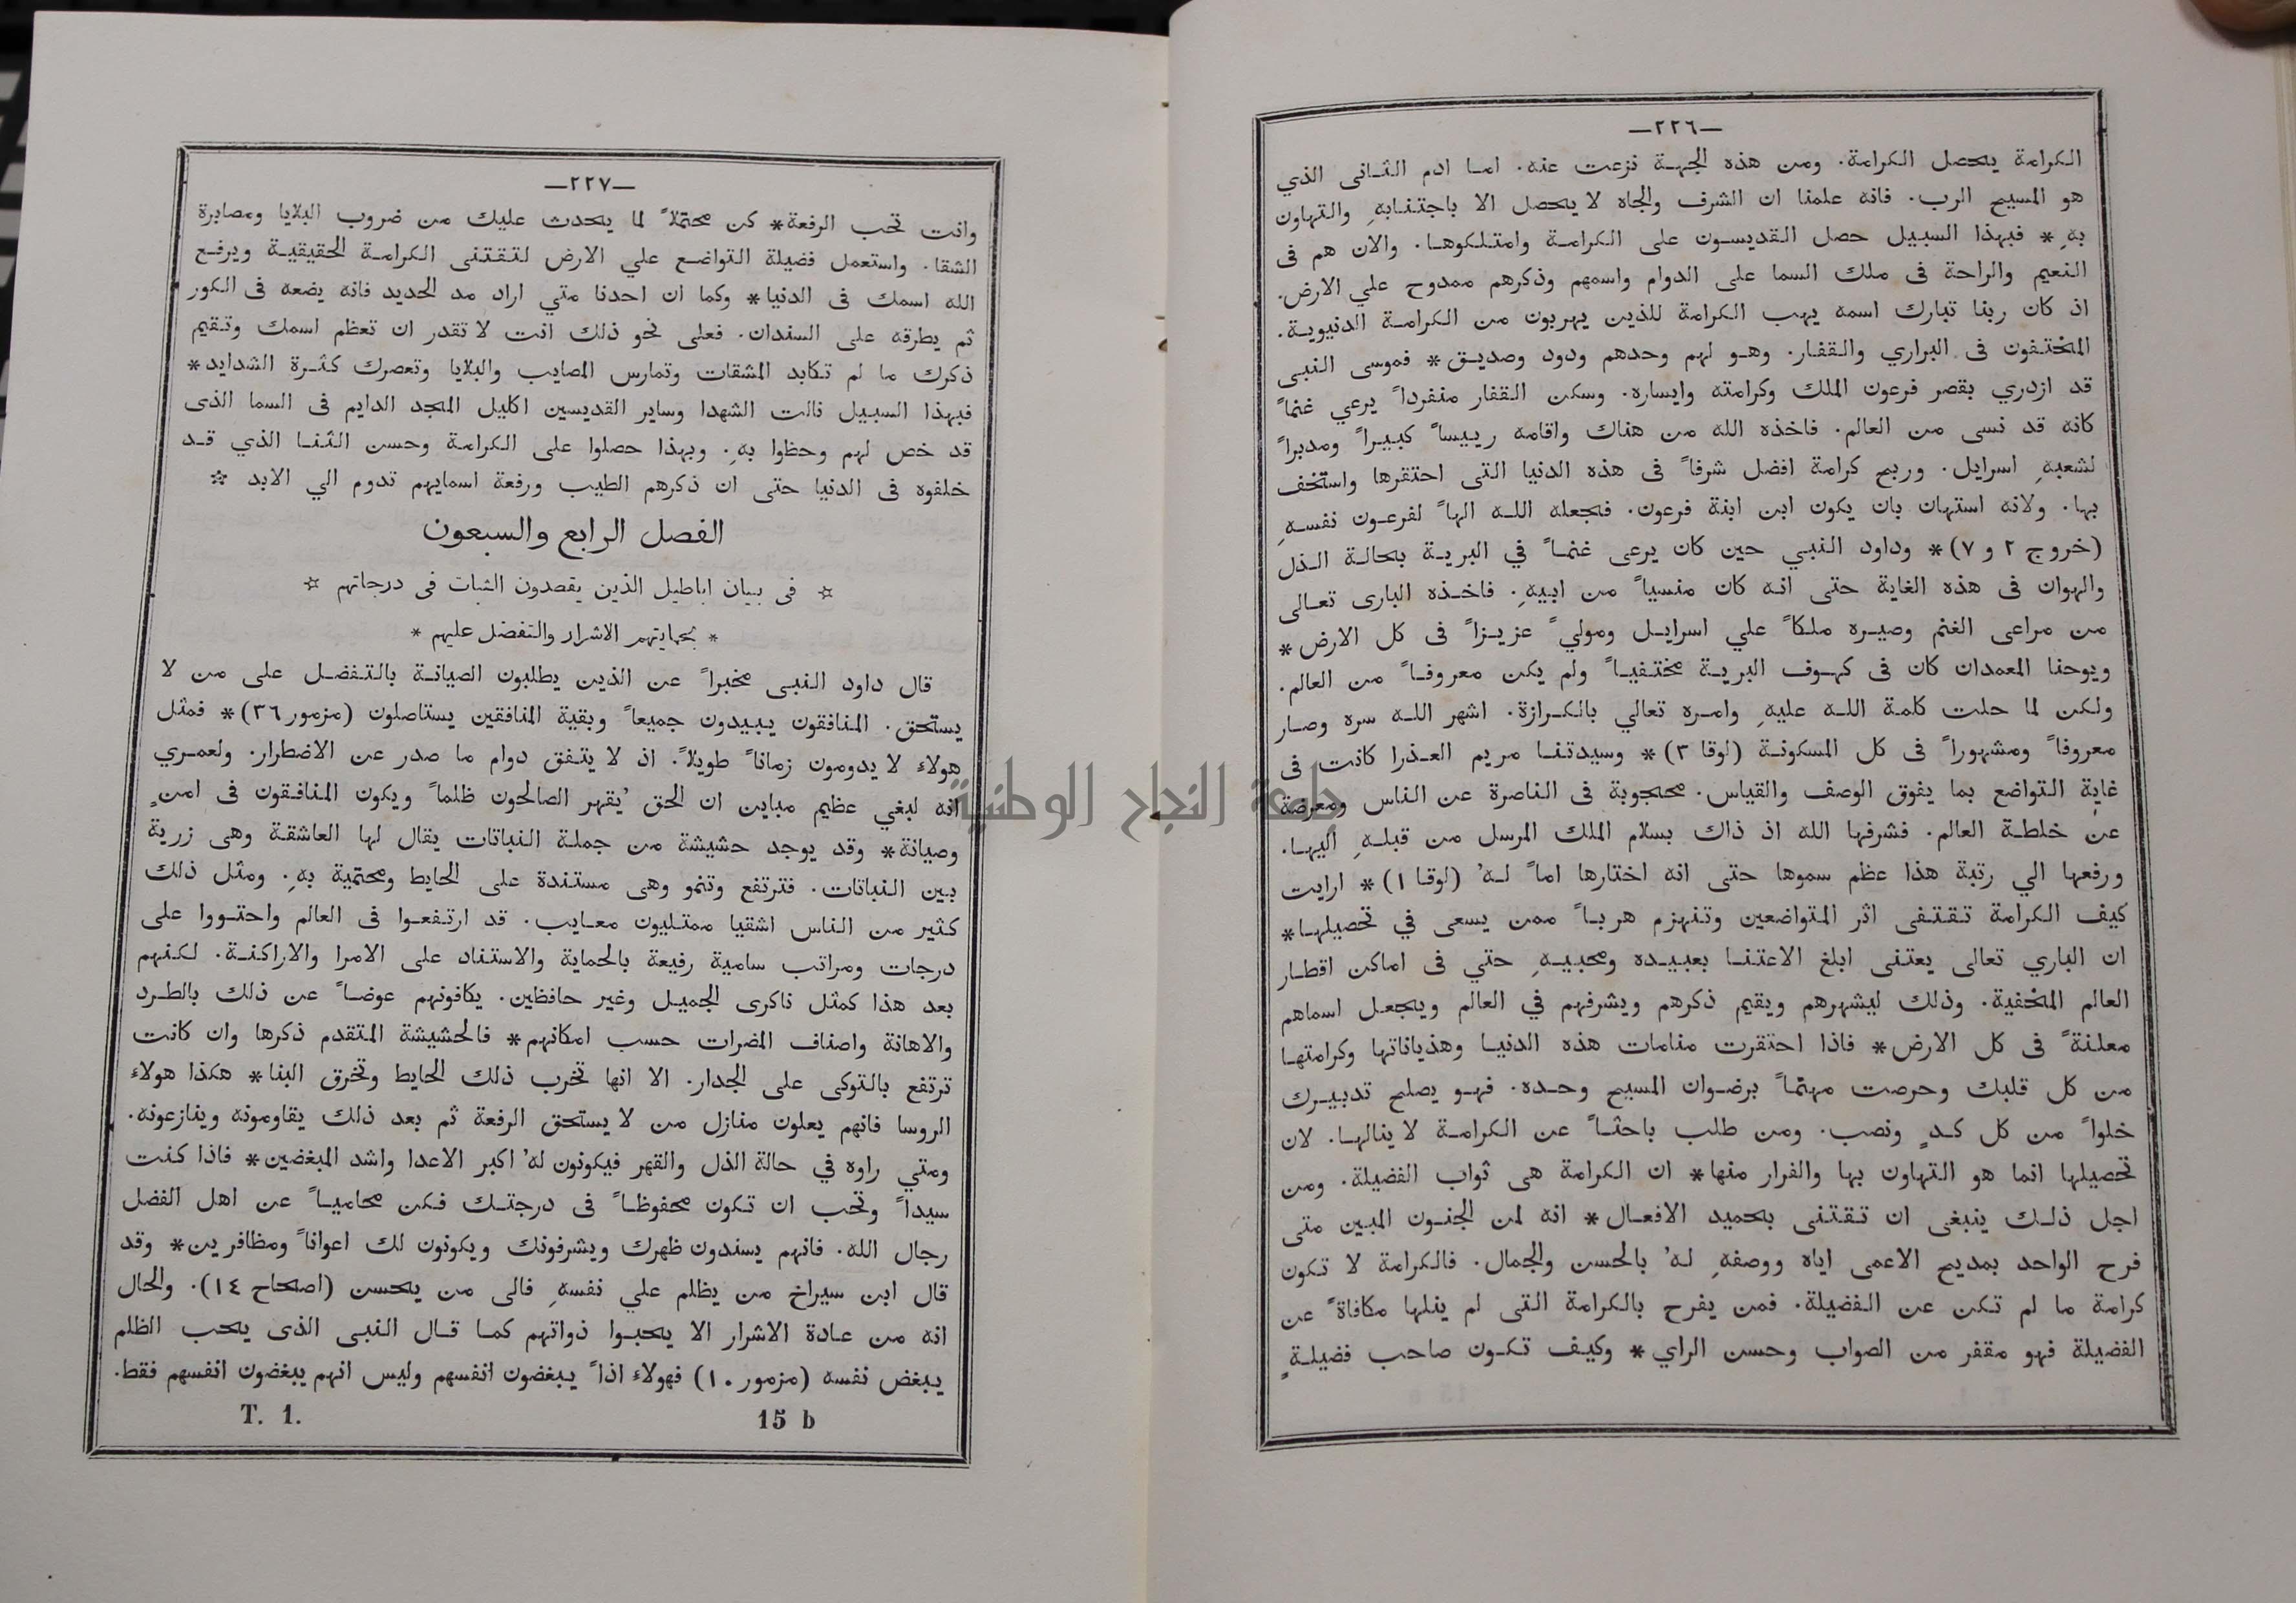 —٢٢٦—
الكرامة يحصل الكرامة. ومن هذه الجهة نزعت عنه. اما ادم الثانى الذي
هو المسيح الرب. فانه علمنا ان الشرف والجاه لا يحصل الا باجتنابهِ والتهاون
بهِ * فبهذا السبيل حصل القديسون على الكرامة وامتلكوها. والان هم فى
النعيم والراحة فى ملك السما على الدوام واسمهم وذكرهم ممدوح علي الارض.
اذ كان ربنا تبارك اسمه يهب الكرامة للذين يهربون من الكرامة الدنيوية.
المختفون فى البراري والقفار. وهو لهم وحدهم ودود وصديق* فموسى النبى
قد ازدري بقصر فرعون الملك وكرامته وايساره. وسكن القفار منفرداً يرعي غنماً
كانه قد نسى من العالم. فاخذه الله من هناك واقامه رييساً كبيراً ومدبراً
لشعبهِ اسرايل. وربح كرامة افضل شرفاً فى هذه الدنيا التى احتقرها واستخف
بها. ولانه استهان بان يكون ابن ابنة فرعون. فجعله الله الهاً لفرعون نفسهِ
(خروج ٢ و ٧)* وداود النبي حين كان يرعى غنماً في البرية بحالة الذل
والهوان فى هذه الغاية حتى انه كان منسياً من ابيهِ. فاخذه البارى تعالى
من مراعى الغنم وصيره ملكاً علي اسرايل ومولي ً عزيزاً فى كل الارض*
ويوحنا المعمدان كان فى كهوف البرية مختفياً ولم يكن معروفاً من العالم.
ولكن لما حلت كلمة الله عليهِ وامره تعالي بالكرازة. اشهر الله سره وصار
معروفاً ومشهوراً فى كل المسكونة (لوقا ٣)* وسيدتنا مريم العذرا كانت فى
غاية التواضع بما يفوق الوصف والقياس. محجوبة فى الناصرة عن الناس ومعرضة
عن خلطة العالم. فشرفها الله اذ ذاك بسلام الملك المرسل من قبلهِ اليها.
ورفعها الي رتبة هذا عظم سموها حتى انه اختارها اماً لهُ (لوقا ١)* ارايت
كيف الكرامة تقتفى اثر المتواضعين وتنهزم هرباً ممن يسعى في تحصيلها*
ان الباري تعالى يعتنى ابلغ الاعتنا بعبيده ومحبيهِ حتي فى اماكن اقطار
العالم المخفية. وذلك ليشهرهم ويقيم ذكرهم ويشرفهم في العالم ويجعل اسماهم
معلنةً فى كل الارض* فاذا احتقرت منامات هذه الدنيا وهذياناتها وكرامتها
من كل قلبك وحرصت مهتماً برضوان المسيح وحده. فهو يصلح تدبيرك
خلواً من كل كدٍ ونصب. ومن طلب باحثاً عن الكرامة لا ينالها. لان
تحصيلها انما هو التهاون بها والفرار منها* ان الكرامة هى ثواب الفضيلة. ومن
اجل ذلك ينبغى ان تقتنى بحميد الافعال* انه لمن الجنون المبين متى
فرح الواحد بمديح الاعمى اياه ووصفهِ لهُ بالحسن والجمال. فالكرامة لا تكون
كرامة ما لم تكن عن الفضيلة. فمن يفرح بالكرامة التى لم ينلها مكافاةً عن
الفضيلة فهو مقفر من الصواب وحسن الراي* وكيف تكون صاحب فضيلةٍ
—٢٢٧—
وانت تحب الرفعة* كن محتملاً لما يحدث عليك من ضروب البلايا ومصابرة
الشقا. واستعمل فضيلة التواضع علي الارض لتقتنى الكرامة الحقيقية ويرفع
الله اسمك فى الدنيا* وكما ان احدنا متي اراد مد الحديد فانه يضعه فى الكور
ثم يطرقه على السندان. فعلى نحو ذلك انت لا تقدر ان تعظم اسمك وتقيم
ذكرك ما لم تكابد المشقات وتمارس المصايب والبلايا وتعصرك كثرة الشدايد*
فبهذا السبيل نالت الشهدا وساير القديسين اكليل المجد الدايم فى السما الذى
قد خص لهم وحظوا بهِ. وبهذا حصلوا على الكرامة وحسن الثنا الذي قد
خلفوه فى الدنيا حتى ان ذكرهم الطيب ورفعة اسمايهم تدوم الي الابد *
الفصل الرابع والسبعون
* فى بيان اباطيل الذين يقصدون الثبات فى درجاتهم *
* بحمايتهم الاشرار والتفضل عليهم *
قال داود النبى مخبراً عن الذين يطلبون الصيانة بالتفضل على من لا
يستحق. المنافقون يبيدون جميعاً وبقية المنافقين يستاصلون (مزمور ٣٦)* فمثل
هولاء لا يدومون زماناً طويلاً. اذ لا يتفق دوام ما صدر عن الاضطرار. ولعمري
انه لبغي عظيم مباين ان الحق ُيقهر الصالحون ظلماً ويكون المنافقون فى امنٍ
وصيانة* وقد يوجد حشيشة من جملة النباتات يقال لها العاشقة وهى زرية
بين النباتات. فترتفع وتنمو وهى مستندة على الحايط ومحتمية بهِ. ومثل ذلك
كثير من الناس اشقيا ممتليون معايب. قد ارتفعوا فى العالم واحتووا على
درجات ومراتب سامية رفيعة بالحماية والاستناد على الامرا والاراكنة. لكنهم
بعد هذا كمثل ناكرى الجميل وغير حافظين. يكافونهم عوضاً عن ذلك بالطرد
والاهانة واصناف المضرات حسب امكانهم* فالحشيشة المتقدم ذكرها وان كانت
ترتفع بالتوكى على الجدار. الا انها تخرب ذلك الحايط وتخرق البنا* هكذا هولاء
الروسا فانهم يعلون منازل من لا يستحق الرفعة ثم بعد ذلك يقاومونه وينازعونه.
ومتي راوه في حالة الذل والقهر فيكونون لهُ اكبر الاعدا واشد المبغضين* فاذا كنت
سيداً وتحب ان تكون محفوظاً فى درجتك فكن محامياً عن اهل الفضل
رجال الله. فانهم يسندون ظهرك ويشرفونك ويكونون لك اعواناً ومظافرين* وقد
قال ابن سيراخ من يظلم علي نفسهِ فالى من يحسن (اصحاح ١٤). والحال
انه من عادة الاشرار الا يحبوا ذواتهم كما قال النبى الذى يحب الظلم
يبغض نفسه (مزمور ١٠) فهولاء اذاً يبغضون انفسهم وليس انهم يبغضون انفسهم فقط.
T. 1. 15 b
جامعة النجاح الوطنية